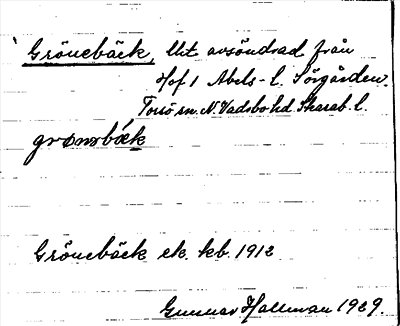 Grönebäck, lht avsöndrad från
Hof 1 Abels- l. Sörgården.
Torsö sn. N. Vadsbo hd. Skarab. l.
grønsbäk
Grönebäck ek. kb. 1912
Gunnar Hallman 1929.